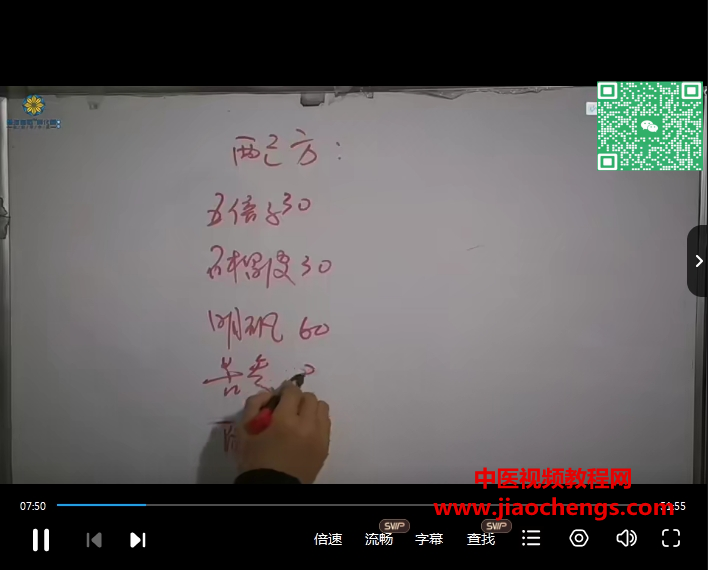 配方：
五倍子30
石榴皮30
明矾 60
苦参
中医视频教程网
www.jiaochengs.com
07:50
倍速
流畅
SVIP
字幕
查找
SVIP